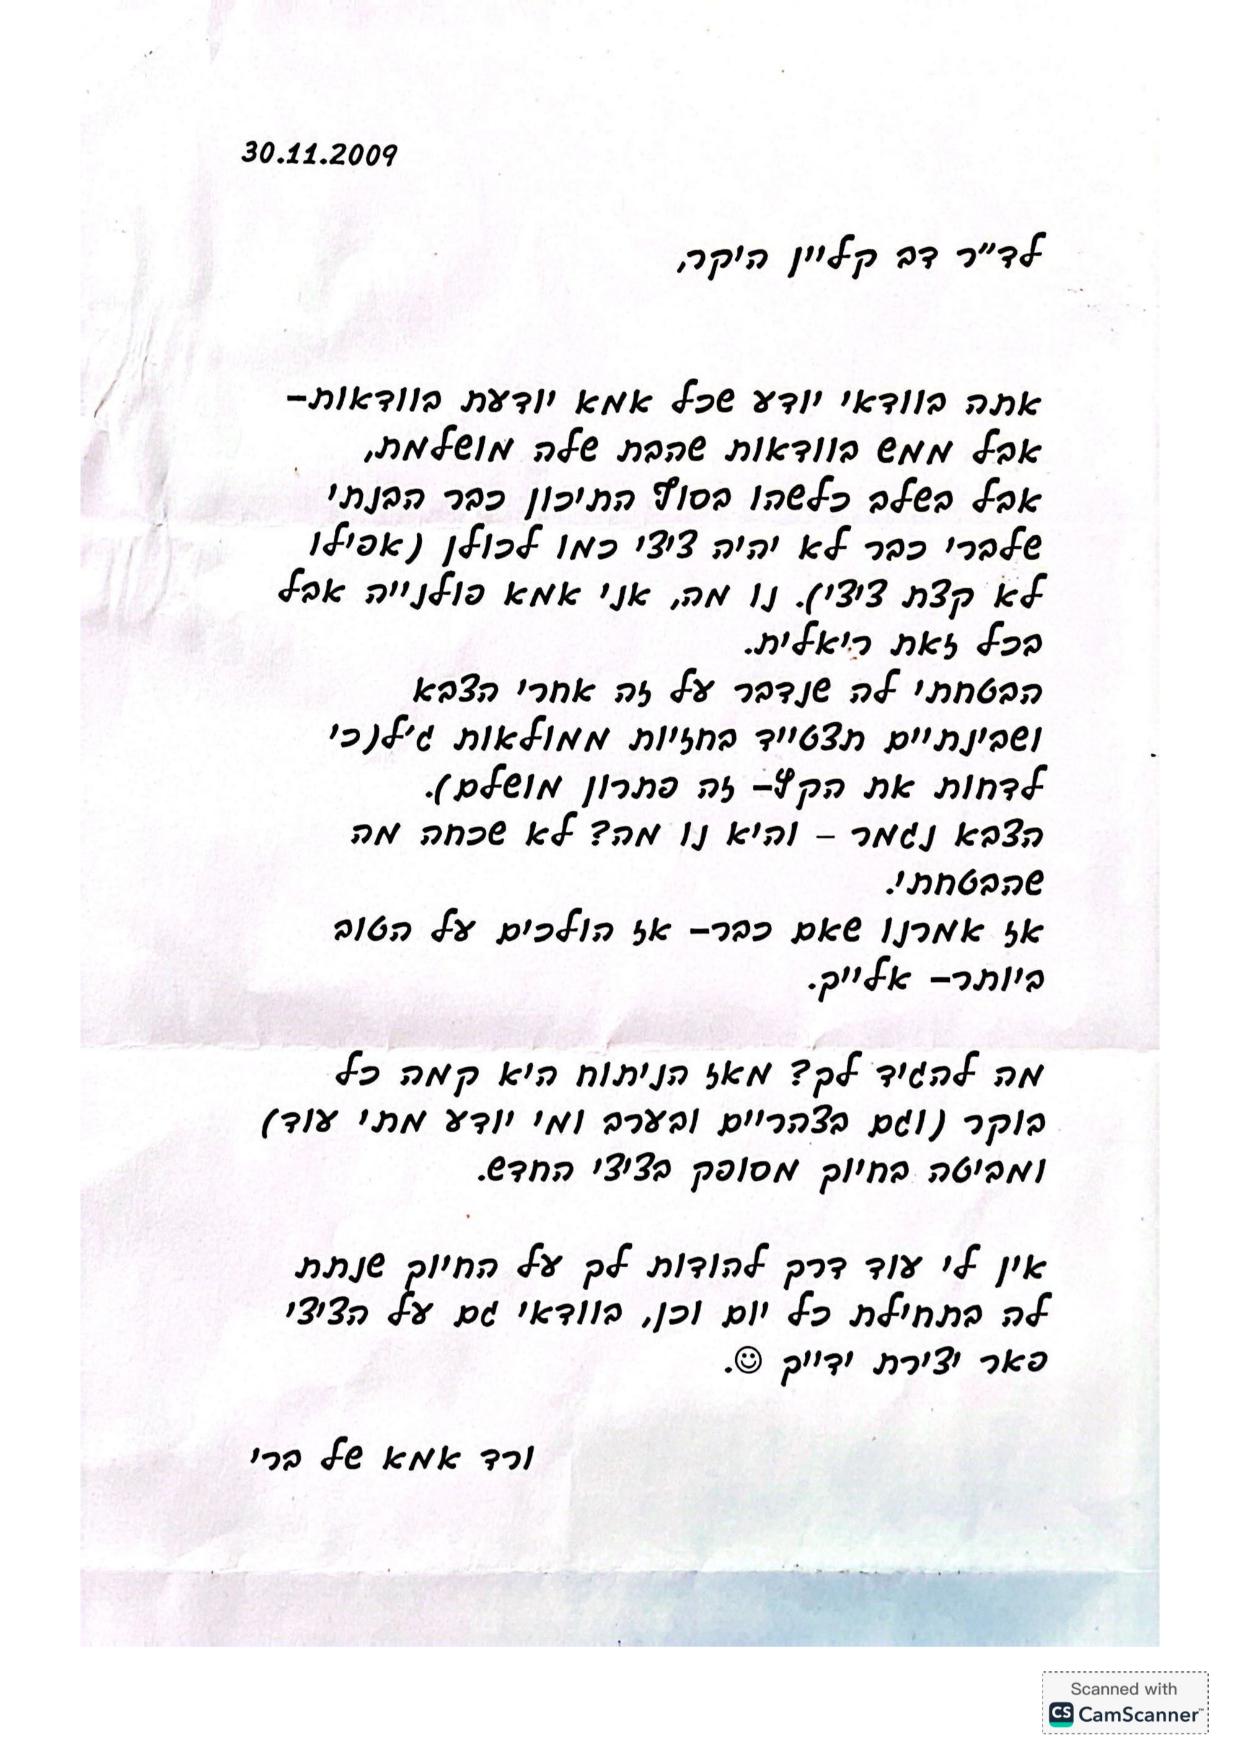 30.11.2009
לד"ר דב קליין היקר,
אתה בוודאי יודע שכל אמא יודעת בוודאות-
אבל ממש בוודאות שהבת שלה מושלמת,
אבל בשלב כלשהו בסוף התיכון כבר הבנתי
שלברי כבר לא יהיה ציצי כמו לכולן (אפילו
לא קצת ציצי). נו מה, אני אמא פולנייה אבל
בכל זאת ריאלית.
הבטחתי לה שנדבר על זה אחרי הצבא
ושבינתיים תצטייד בחזיות ממולאות ג'ל(כי
לדחות את הקץ- זה פתרון מושלם).
הצבא נגמר – והיא נו מה? לא שכחה מה
שהבטחתי.
אז אמרנו שאם כבר- אז הולכים על הטוב
ביותר- אלייך.
מה להגיד לך? מאז הניתוח היא קמה כל
בוקר (וגם בצהריים ובערב ומי יודע מתי עוד)
ומביטה בחיוך מסופק בציצי החדש.
אין לי עוד דרך להודות לך על החיוך שנתת
לה בתחילת כל יום וכן, בוודאי גם על הציצי
פאר יצירת ידייך ☺.
ורד אמא של ברי
Scanned with
CS CamScanner